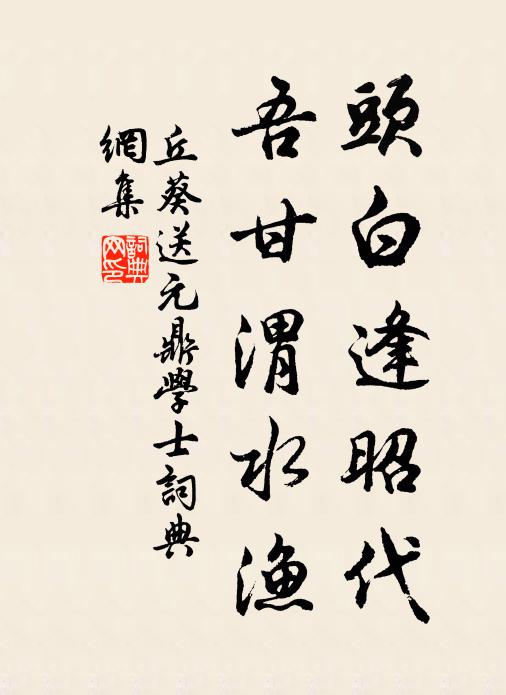 頭白逢昭代
吾甘渭水漁
丘葵送元鼎學士詞典
網集
詞典網印